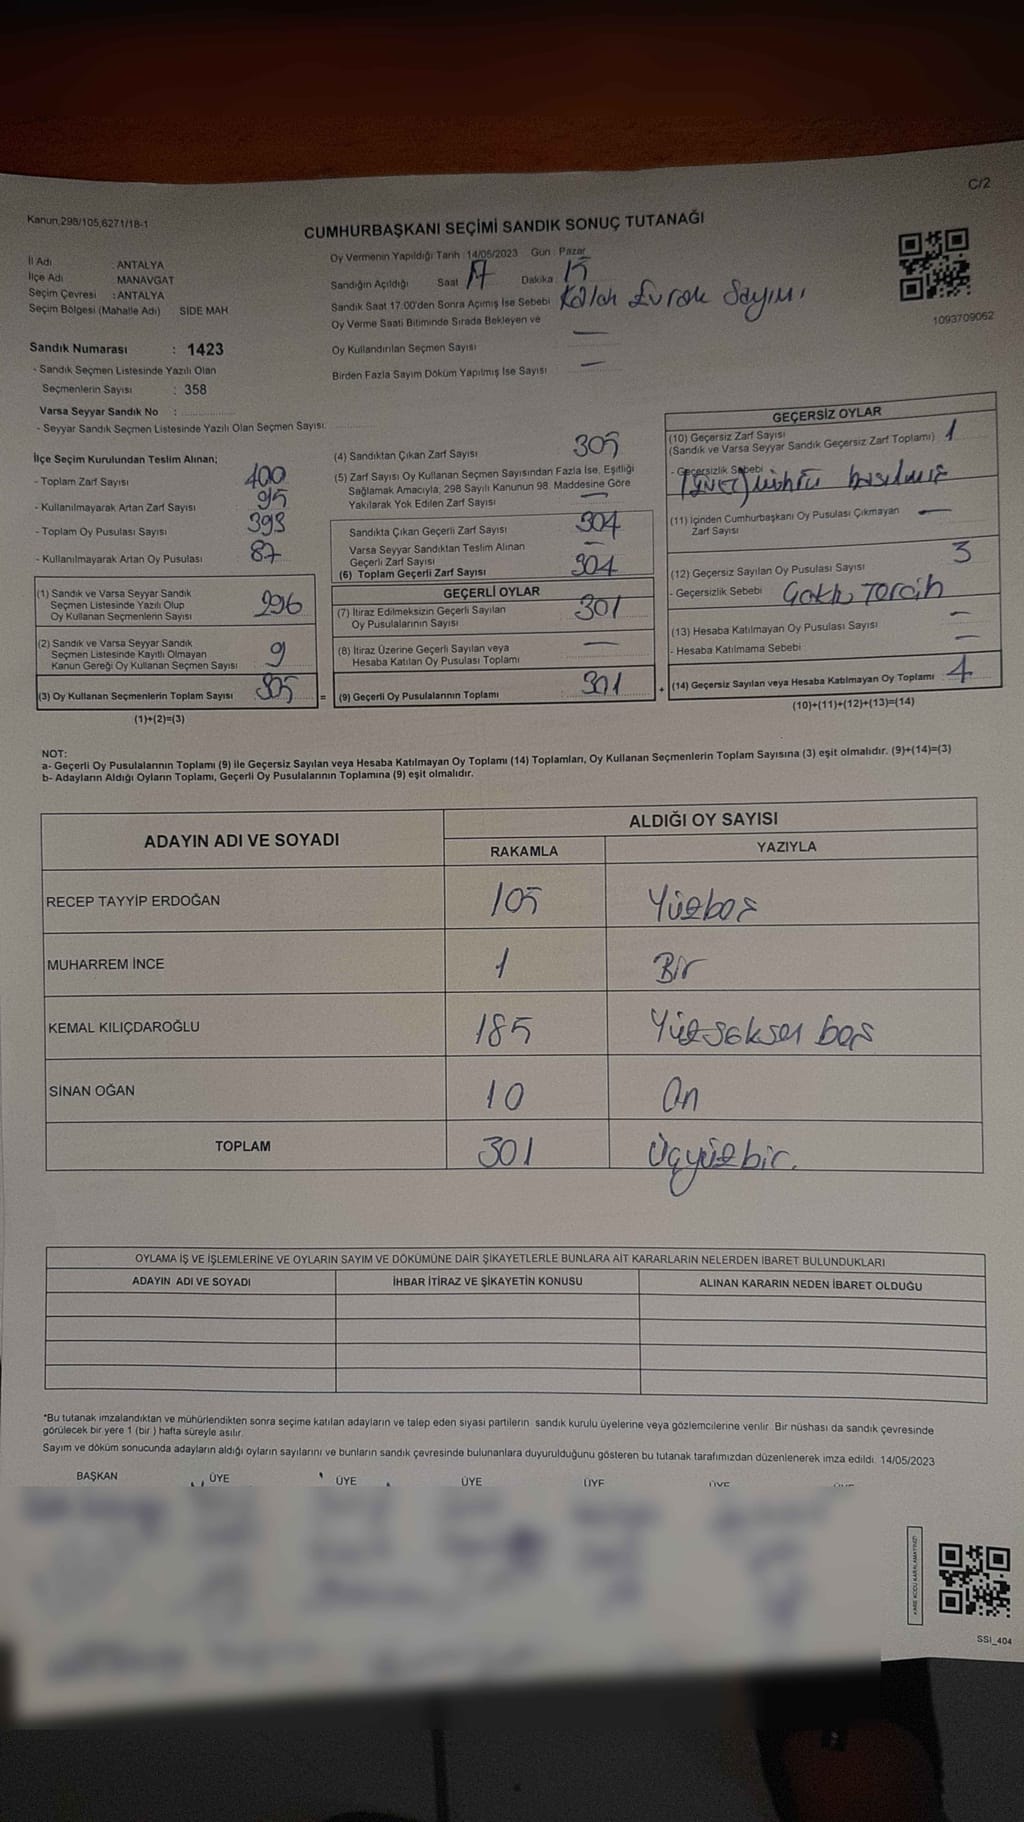 C/2
Kanun,298/105,6271/18-1
CUMHURBAŞKANI SEÇİMİ SANDIK SONUÇ TUTANAĞI
İl Adı : ANTALYA
İlçe Adı : MANAVGAT
Seçim Çevresi : ANTALYA
Seçim Bölgesi (Mahalle Adı) SIDE MAH
Sandık Numarası : 1423
- Sandık Seçmen Listesinde Yazılı Olan
Seçmenlerin Sayısı : 358
Varsa Seyyar Sandık No :
- Seyyar Sandık Seçmen Listesinde Yazılı Olan Seçmen Sayısı:
Oy Vermenin Yapıldığı Tarih :14/05/2023 Gün : Pazar
Sandığın Açıldığı Saat 17 Dakika : 15
Sandık Saat 17:00'den Sonra Açımış İse Sebebi Kalan Evrak Sayımı
Oy Verme Saati Bitiminde Sırada Bekleyen ve
Oy Kullandırılan Seçmen Sayısı —
Birden Fazla Sayım Döküm Yapılmış İse Sayısı —
1093709062
İlçe Seçim Kurulundan Teslim Alınan;
- Toplam Zarf Sayısı 400
- Kullanılmayarak Artan Zarf Sayısı 95
- Toplam Oy Pusulası Sayısı 393
- Kullanılmayarak Artan Oy Pusulası 87
(1) Sandık ve Varsa Seyyar Sandık
Seçmen Listesinde Yazılı Olup
Oy Kullanan Seçmenlerin Sayısı 296
(2) Sandık ve Varsa Seyyar Sandık
Seçmen Listesinde Kayıtlı Olmayan
Kanun Gereği Oy Kullanan Seçmen Sayısı 9
(3) Oy Kullanan Seçmenlerin Toplam Sayısı 305 =
(1)+(2)=(3)
(4) Sandıktan Çıkan Zarf Sayısı 305
(5) Zarf Sayısı Oy Kullanan Seçmen Sayısından Fazla İse, Eşitliği
Sağlamak Amacıyla, 298 Sayılı Kanunun 98. Maddesine Göre
Yakılarak Yok Edilen Zarf Sayısı —
Sandıkta Çıkan Geçerli Zarf Sayısı 304
Varsa Seyyar Sandıktan Teslim Alınan
Geçerli Zarf Sayısı —
(6) Toplam Geçerli Zarf Sayısı 304
GEÇERLİ OYLAR
(7) İtiraz Edilmeksizin Geçerli Sayılan
Oy Pusulalarının Sayısı 301
(8) İtiraz Üzerine Geçerli Sayılan veya
Hesaba Katılan Oy Pusulası Toplamı —
(9) Geçerli Oy Pusulalarının Toplamı 301 +
GEÇERSİZ OYLAR
(10) Geçersiz Zarf Sayısı
(Sandık ve Varsa Seyyar Sandık Geçersiz Zarf Toplamı) 1
- Geçersizlik Sebebi
mührü basılmış
(11) İçinden Cumhurbaşkanı Oy Pusulası Çıkmayan
Zarf Sayısı —
(12) Geçersiz Sayılan Oy Pusulası Sayısı 3
- Geçersizlik Sebebi Çoklu Tercih
(13) Hesaba Katılmayan Oy Pusulası Sayısı —
- Hesaba Katılmama Sebebi —
(14) Geçersiz Sayılan veya Hesaba Katılmayan Oy Toplamı 4
(10)+(11)+(12)+(13)=(14)
NOT:
a- Geçerli Oy Pusulalarının Toplamı (9) ile Geçersiz Sayılan veya Hesaba Katılmayan Oy Toplamı (14) Toplamları, Oy Kullanan Seçmenlerin Toplam Sayısına (3) eşit olmalıdır. (9)+(14)=(3)
b- Adayların Aldığı Oyların Toplamı, Geçerli Oy Pusulalarının Toplamına (9) eşit olmalıdır.
ADAYIN ADI VE SOYADI
ALDIĞI OY SAYISI
RAKAMLA YAZIYLA
RECEP TAYYİP ERDOĞAN 105 Yüzbeş
MUHARREM İNCE 1 Bir
KEMAL KILIÇDAROĞLU 185 Yüzseksen beş
SİNAN OĞAN 10 On
TOPLAM 301 Üçyüzbir.
OYLAMA İŞ VE İŞLEMLERİNE VE OYLARIN SAYIM VE DÖKÜMÜNE DAİR ŞİKAYETLERLE BUNLARA AİT KARARLARIN NELERDEN İBARET BULUNDUKLARI
ADAYIN ADI VE SOYADI İHBAR İTİRAZ VE ŞİKAYETİN KONUSU ALINAN KARARIN NEDEN İBARET OLDUĞU
*Bu tutanak imzalandıktan ve mühürlendikten sonra seçime katılan adayların ve talep eden siyasi partilerin sandık kurulu üyelerine veya gözlemcilerine verilir. Bir nüshası da sandık çevresinde
görülecek bir yere 1 (bir ) hafta süreyle asılır.
Sayım ve döküm sonucunda adayların aldığı oyların sayılarını ve bunların sandık çevresinde bulunanlara duyurulduğunu gösteren bu tutanak tarafımızdan düzenlenerek imza edildi. 14/05/2023
BAŞKAN ÜYE ÜYE ÜYE ÜYE ÜYE
KARE KODU KARALAMAYINIZ!
SSI_404